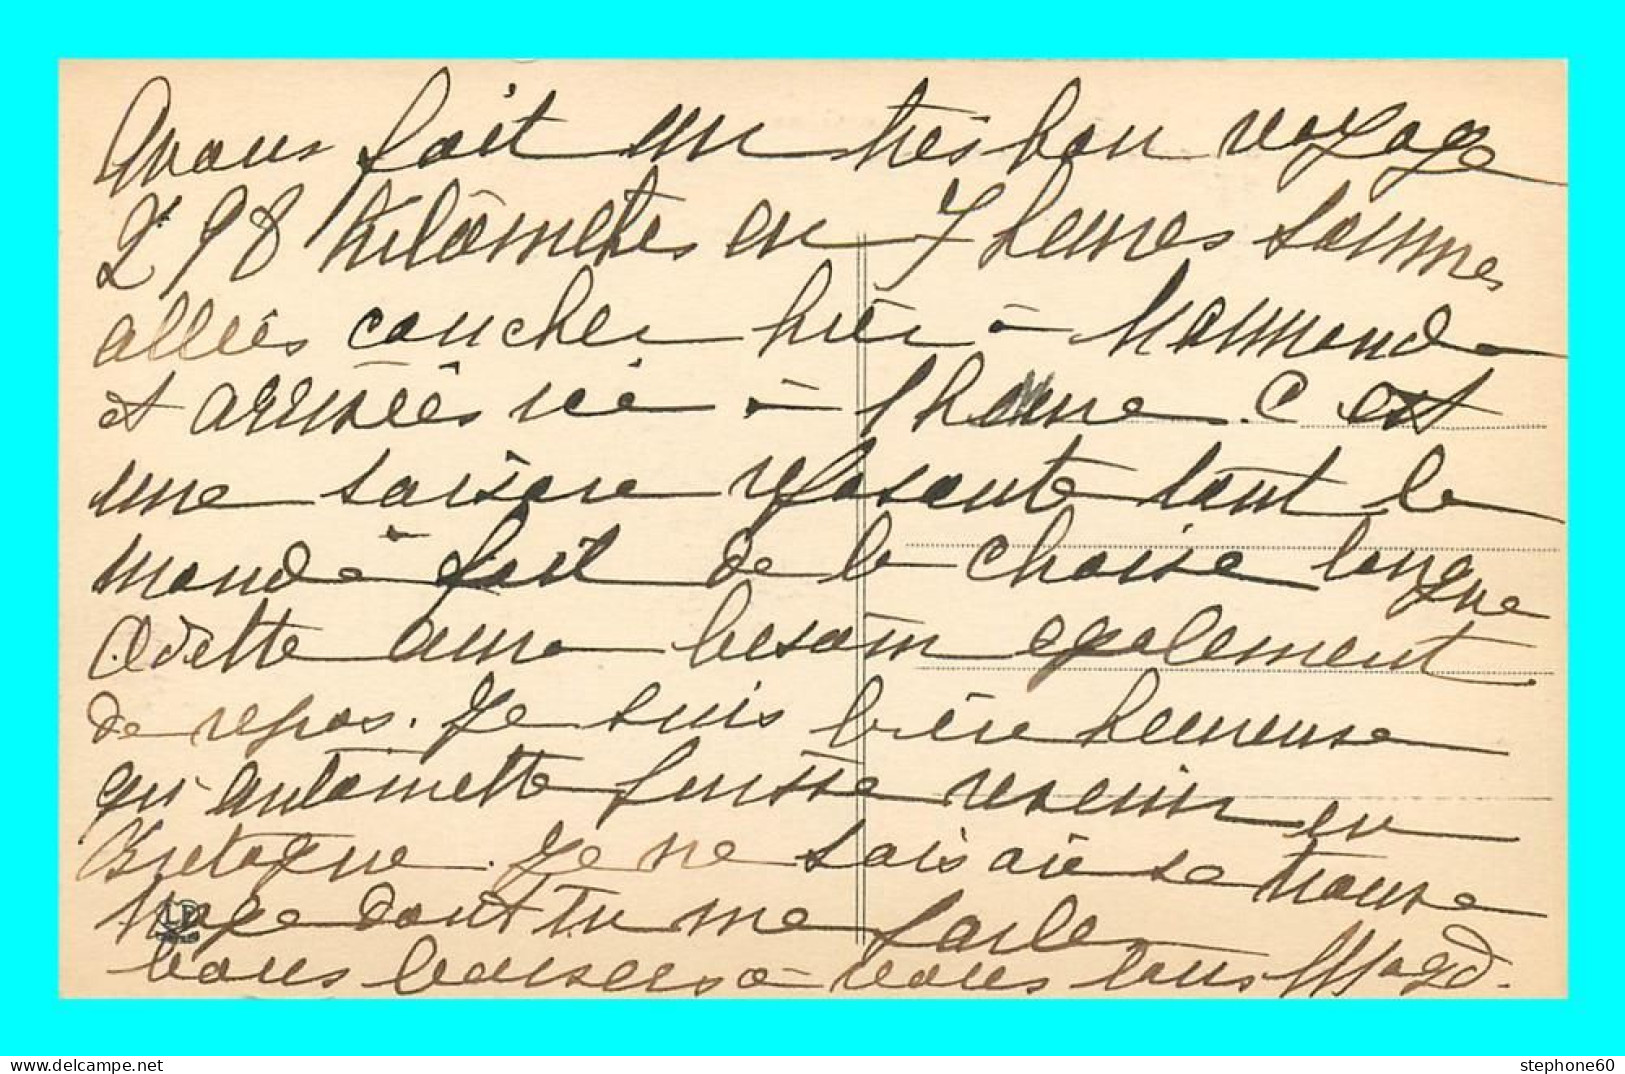 Avons fait un très bon voyage
298 Kilomètres en 7 heures sommes
allées coucher hier à Marmande
et arrivées ici à 1 heure. C est
une saison reposante tout le
monde fait de la chaise longue
Odette aura besoin egalement
de repos. Je suis bien heureuse
qu'Antoinette puisse revenir en
Bretagne. Je ne sais où se trouve
dont tu me parles
bons baisers à vous tous Magd.
LP
stephone60